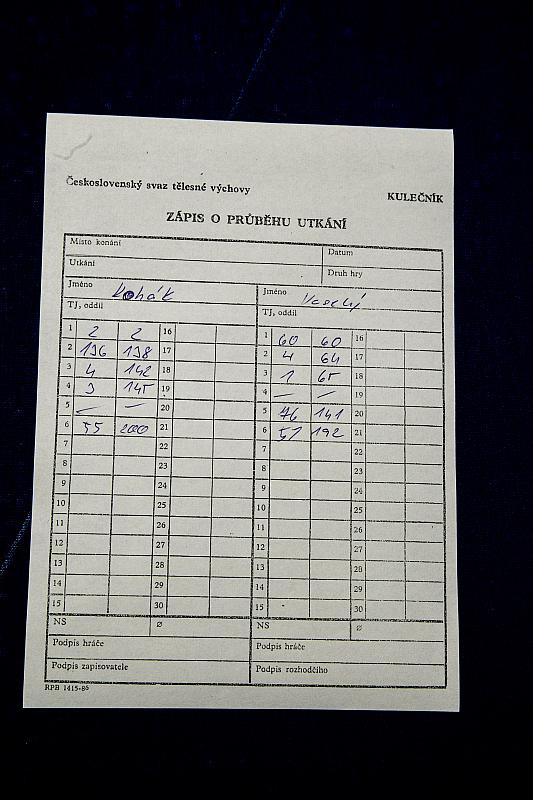 Československý svaz tělesné výchovy
KULEČNÍK
ZÁPIS O PRŮBĚHU UTKÁNÍ
Místo konání Datum
Utkání Druh hry
Jméno Koňák Jméno Veselý
TJ, oddíl TJ, oddíl
1 2 2 16 1 60 60 16
2 136 138 17 2 4 64 17
3 4 142 18 3 1 65 18
4 3 145 19 4 — — 19
5 — — 20 5 76 141 20
6 55 200 21 6 51 192 21
7 22 7 22
8 23 8 23
9 24 9 24
10 25 10 25
11 26 11 26
12 27 12 27
13 28 13 28
14 29 14 29
15 30 15 30
NS Ø NS Ø
Podpis hráče Podpis hráče
Podpis zapisovatele Podpis rozhodčího
RPB 1415-86